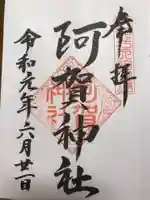 奉拝
阿賀神社
令和元年六月廿一日